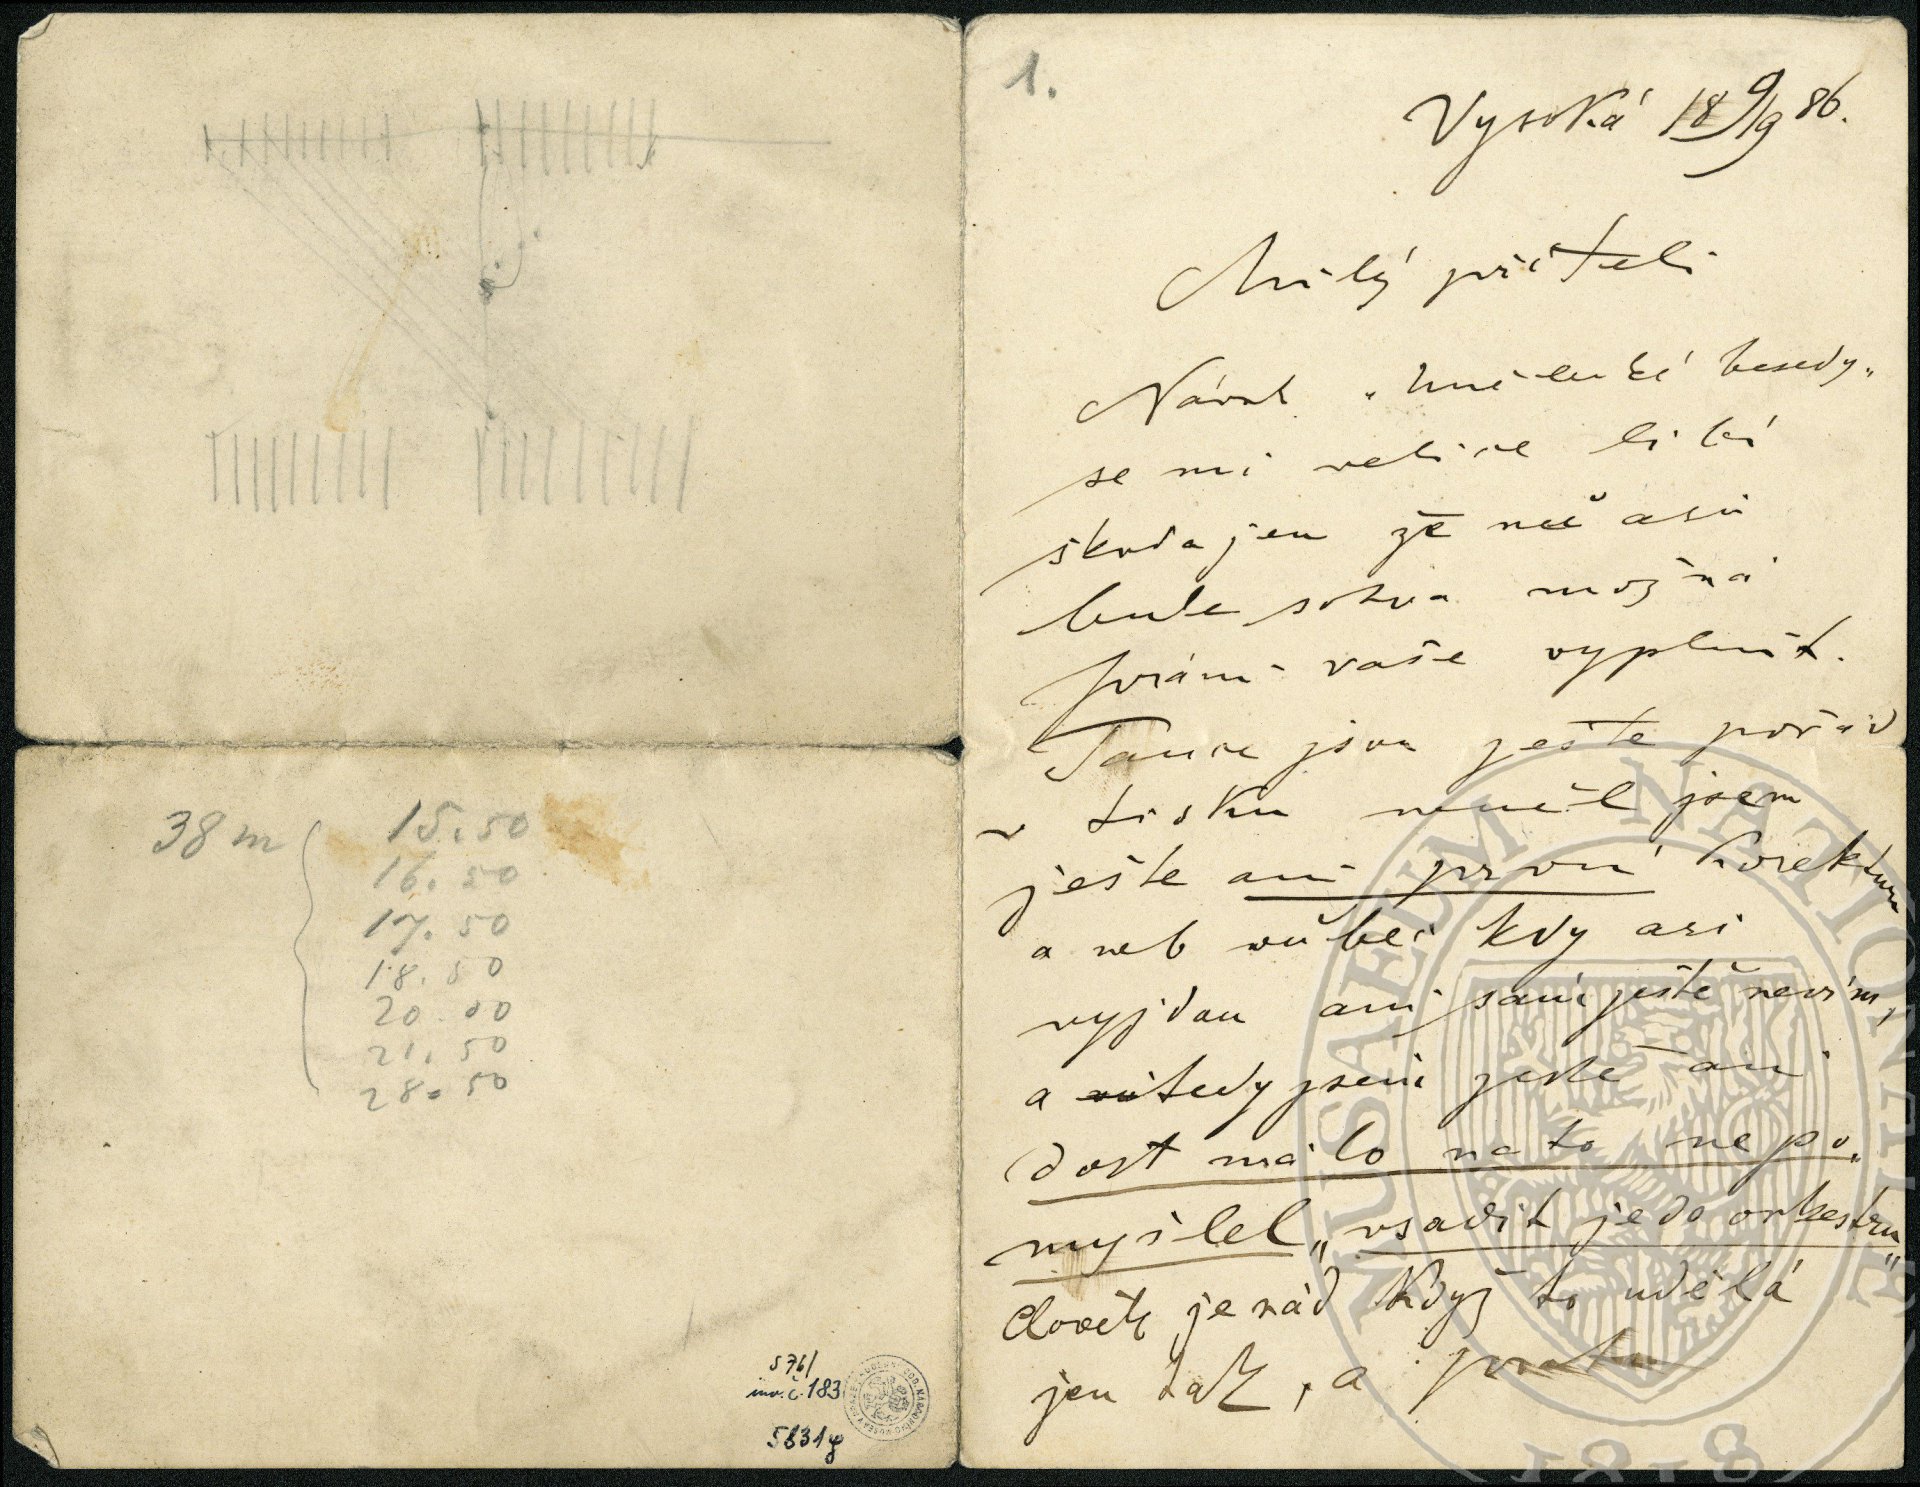 38 m
15.50
16.50
17.50
18.50
20.00
21.50
28.50
576/
inv. č. 183
5831
1.
Vysoká 18 9/9 86.
Milý příteli
Návrh „Umělecké besedy„
se mi velice libí
škoda jen že
bude sotva možná
přání vaše vyplnit.
Tance jsou ješte pořád
v tisku neměl jsem
ješte ani první Korekturu
a neb vůbec kdy asi
vyjdou ani sám ještě nevím,
a tedy jsem ješte ani
dost málo na to nepo„
myslel „vsadit je do orkestru„
Člověk je rád Když to udělá
jen tak, a proto
MUSAEUM NATIONALE
1818